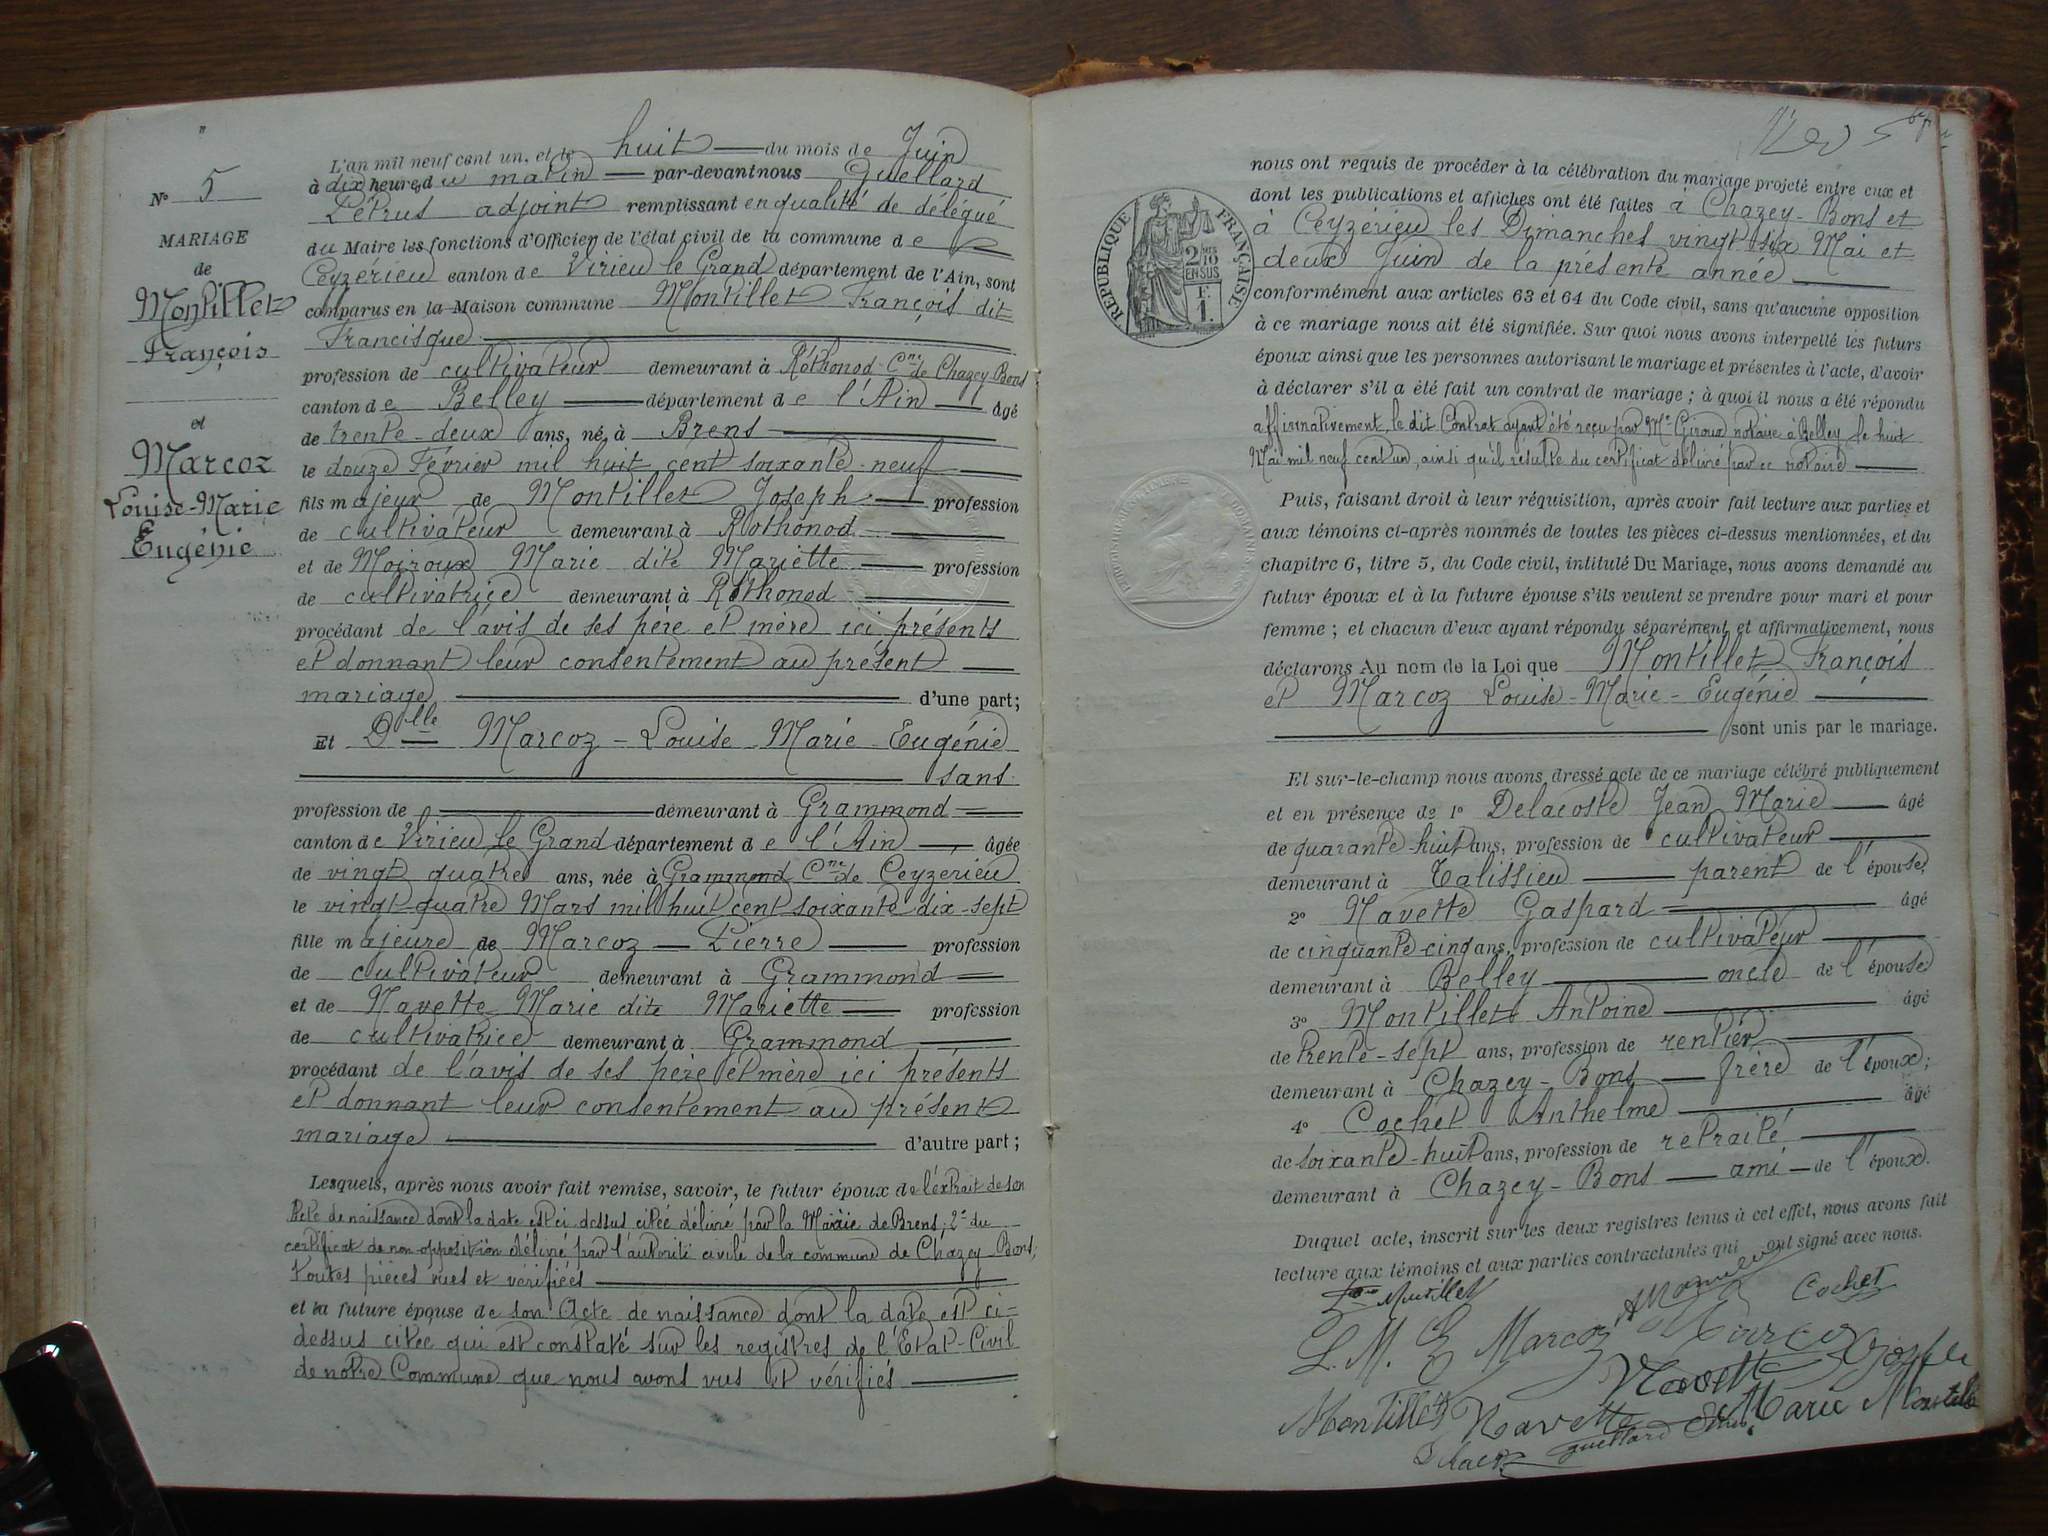 N° 5
MARIAGE
de
Montillet
François
et
Marcoz
Louise-Marie
Eugénie
L'an mil neuf cent un, et le huit du mois de Juin
à dix heures du matin par-devant nous Guellard
Pétrus adjoint remplissant en qualité de délégué
du Maire les fonctions d'Officier de l'état civil de la commune de
Ceyzérieu canton de Virieu le Grand département de l'Ain, sont
comparus en la Maison commune Montillet François dit
Francisque
profession de cultivateur demeurant à Rothonod Cne de Chazey-Bons
canton de Belley département de l'Ain âgé
de trente-deux ans, né à Brens
le douze Février mil huit cent soixante-neuf
fils majeur de Montillet Joseph profession
de cultivateur demeurant à Rothonod
et de Moiroux Marie dite Mariette profession
de cultivatrice demeurant à Rothonod
procédant de l'avis de ses père et mère ici présents
et donnant leur consentement au présent
mariage d'une part;
Et Dlle Marcoz-Louise-Marie-Eugénie
sans
profession de demeurant à Grammond
canton de Virieu le Grand département de l'Ain âgée
de vingt quatre ans, née à Grammond Cne de Ceyzerieu
le vingt-quatre Mars mil huit cent soixante dix-sept
fille majeure de Marcoz Pierre profession
de cultivateur demeurant à Grammond
et de Navette Marie dite Mariette profession
de cultivatrice demeurant à Grammond
procédant de l'avis de ses père et mère ici présents
et donnant leur consentement au présent
mariage d'autre part;
Lesquels, après nous avoir fait remise, savoir, le futur époux de l'extrait de son
acte de naissance dont la date est ci-dessus citée délivré par la Mairie de Brens; 2° du
certificat de non-opposition délivré par l'autorité civile de la commune de Chazey-Bons;
toutes pièces vues et vérifiées
et la future épouse de son Acte de naissance dont la date est ci-
dessus citée qui est constaté sur les registres de l'Etat-Civil
de notre Commune que nous avons vus et vérifiés
RÉPUBLIQUE FRANÇAISE
2/10
EN SUS
F.
1.
nous ont requis de procéder à la célébration du mariage projeté entre eux et
dont les publications et affiches ont été faites à Chazey-Bons et
à Ceyzérieu les Dimanches vingt six Mai et
deux Juin de la présente année
conformément aux articles 63 et 64 du Code civil, sans qu'aucune opposition
à ce mariage nous ait été signifiée. Sur quoi nous avons interpellé les futurs
époux ainsi que les personnes autorisant le mariage et présentes à l'acte, d'avoir
à déclarer s'il a été fait un contrat de mariage; à quoi il nous a été répondu
affirmativement, le dit Contrat ayant été reçu par Me Giroux notaire à Belley le huit
Mai mil neuf cent un, ainsi qu'il résulte du certificat délivré par ce notaire
Puis, faisant droit à leur réquisition, après avoir fait lecture aux parties et
aux témoins ci-après nommés de toutes les pièces ci-dessus mentionnées, et du
chapitre 6, titre 5, du Code civil, intitulé Du Mariage, nous avons demandé au
futur époux et à la future épouse s'ils veulent se prendre pour mari et pour
femme; et chacun d'eux ayant répondu séparément et affirmativement, nous
déclarons Au nom de la Loi que Montillet François
et Marcoz Louise-Marie-Eugénie
sont unis par le mariage.
Et sur-le-champ nous avons dressé acte de ce mariage célébré publiquement
et en présence de 1° Delacoste Jean Marie âgé
de quarante-huit ans, profession de cultivateur
demeurant à Talissieu parent de l'épouse;
2° Navette Gaspard âgé
de cinquante-cinq ans, profession de cultivateur
demeurant à Belley oncle de l'épouse
3° Montillet Antoine âgé
de trente-sept ans, profession de rentier
demeurant à Chazey-Bons frère de l'époux;
4° Cochet Anthelme âgé
de soixante-huit ans, profession de retraité
demeurant à Chazey-Bons ami de l'époux.
Duquel acte, inscrit sur les deux registres tenus à cet effet, nous avons fait
lecture aux témoins et aux parties contractantes qui ont signé avec nous.
Montillet
Cochet
L. M. E Marcoz
Navette
Montillet Navette Marie
Guellard